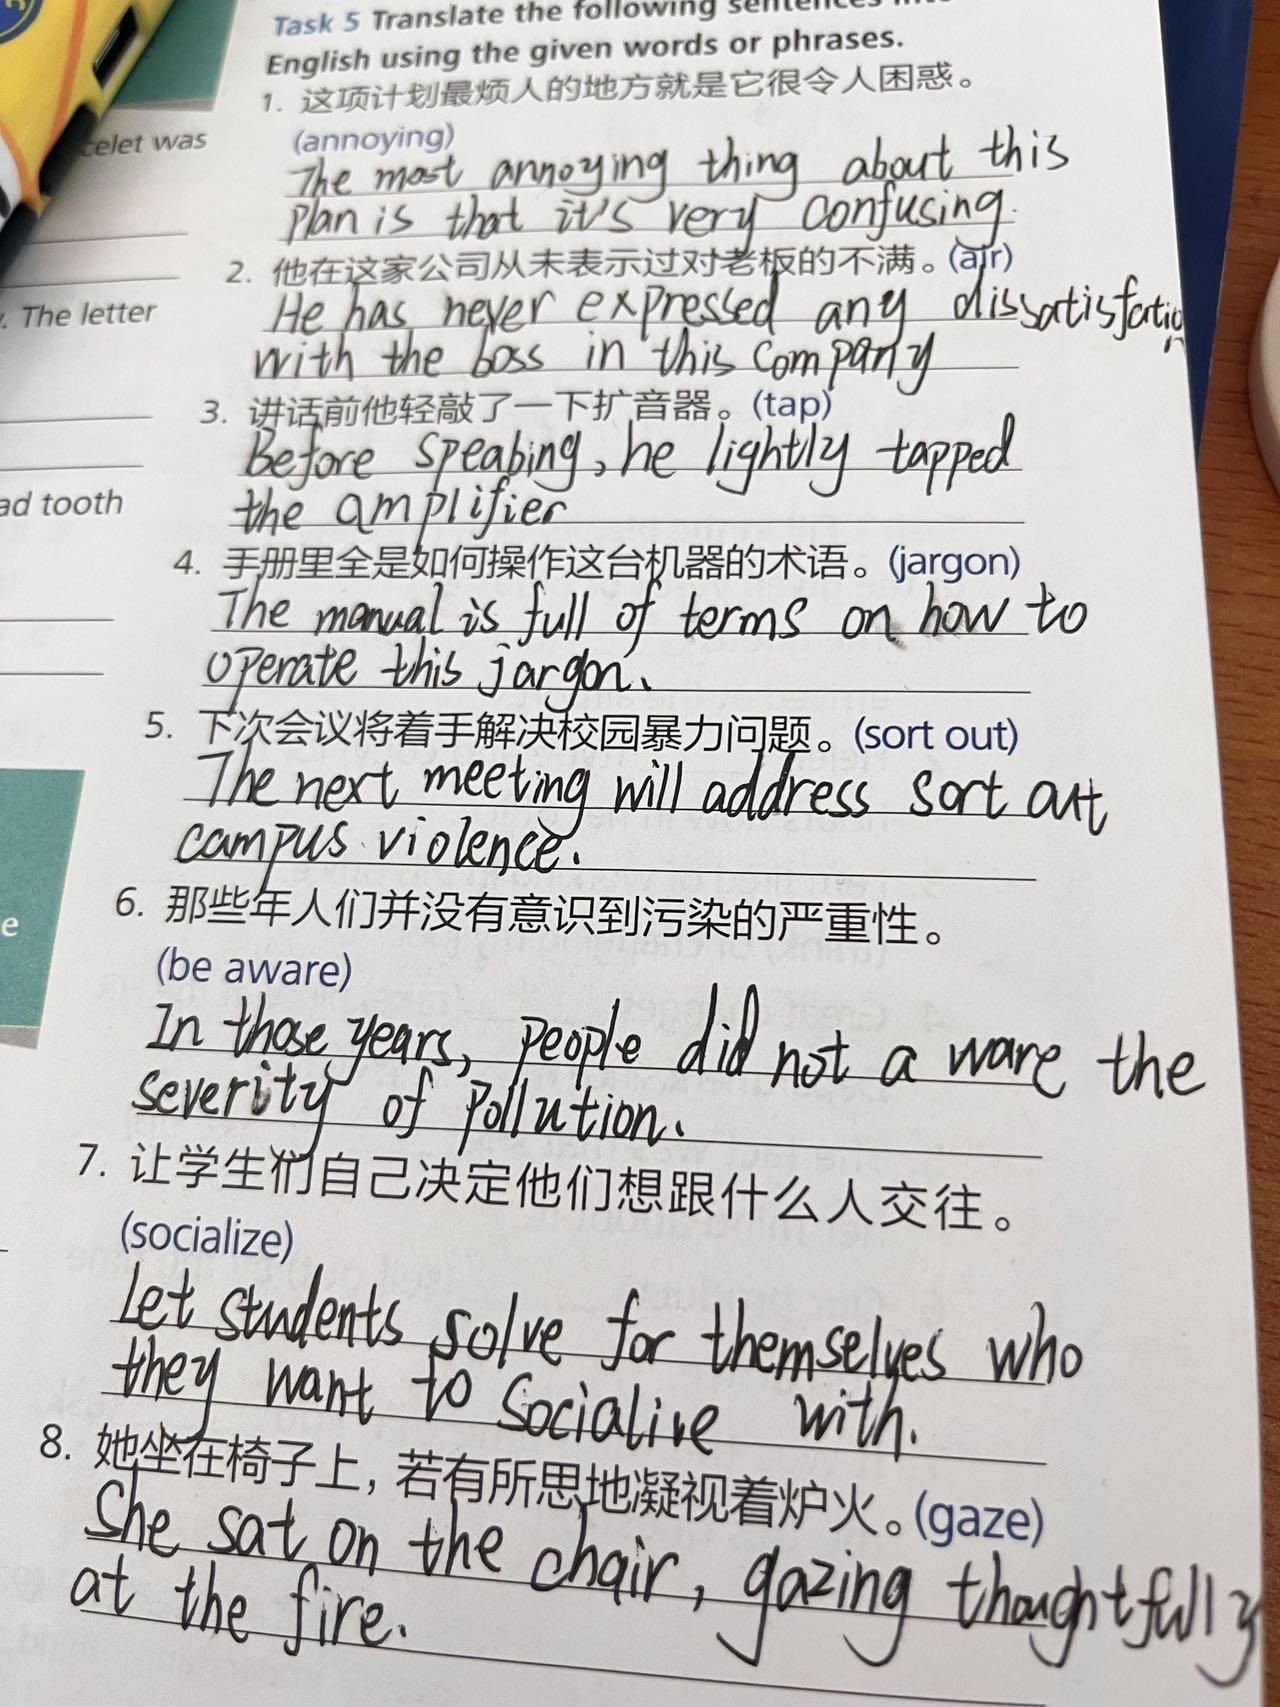 Task 5 Translate the following sentences int
English using the given words or phrases.
1. 这项计划最烦人的地方就是它很令人困惑。
(annoying)
The most annoying thing about this
plan is that it's very confusing.
2. 他在这家公司从未表示过对老板的不满。(air)
He has never expressed any dissatisfaction
with the boss in this company
3. 讲话前他轻敲了一下扩音器。(tap)
Before speabing, he lightly tapped
the amplifier
4. 手册里全是如何操作这台机器的术语。(jargon)
The manual is full of terms on how to
operate this jargon.
5. 下次会议将着手解决校园暴力问题。(sort out)
The next meeting will address sort out
campus violence.
6. 那些年人们并没有意识到污染的严重性。
(be aware)
In those years, people did not a ware the
severity of pollution.
7. 让学生们自己决定他们想跟什么人交往。
(socialize)
Let students solve for themselves who
they want to socialive with.
8. 她坐在椅子上，若有所思地凝视着炉火。(gaze)
She sat on the chair, gazing thoughtfully
at the fire.
celet was
. The letter
ad tooth
e